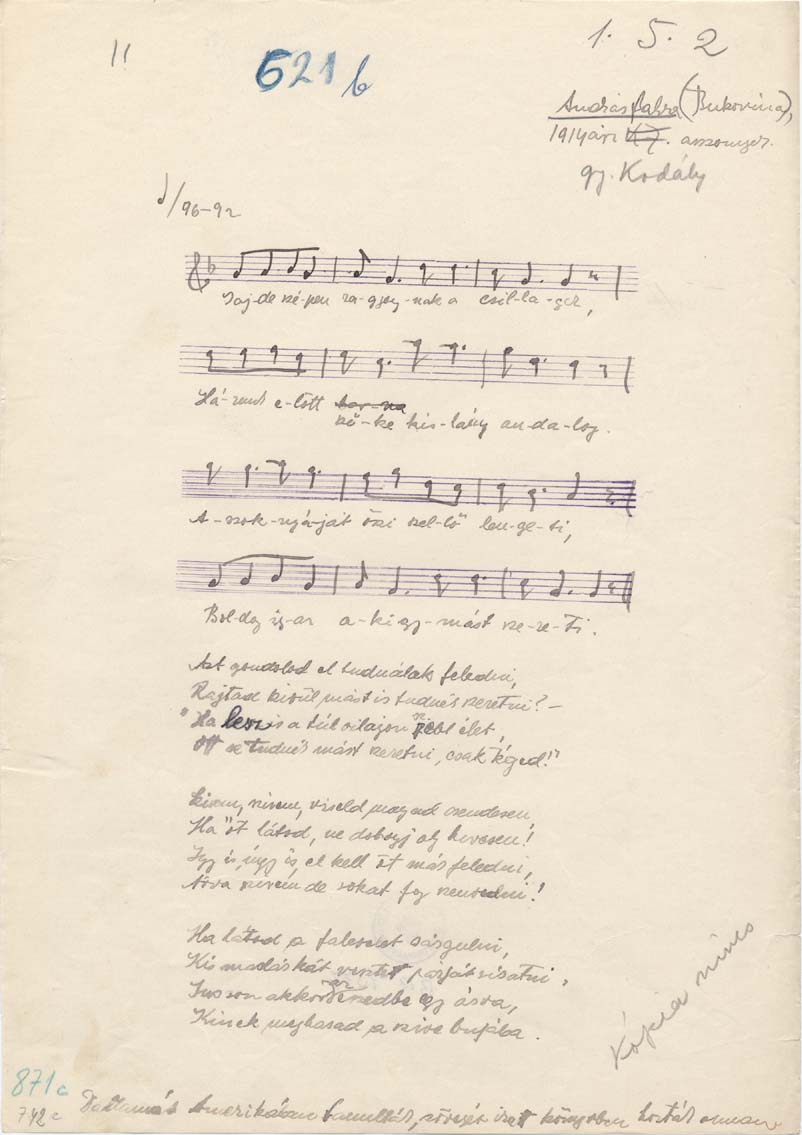 11
621 b
1. 5. 2
Andrásfalva (Bukovina),
1914 ápr. asszonyok.
gy. Kodály
96-92
Jaj-de szé-pen ra-gyog-nak a csil-la-gok,
Há-zunk e-lőtt bar-na
sző-ke kis-lány an-da-log.
A-szok-nyá-ját őszi szel-lő len-ge-ti,
Bol-dog ig-az a-ki egy-mást sze-re-ti.
Azt gondolod el tudnálak feledni,
Rajtad kivül mást is tudnék szeretni? –
"Ha lesz is a túl világon szebb élet,
Ott se tudnék mást szeretni, csak téged!"
Szivem, szivem, viseld magad csendesen,
Ha őt látod, ne dobogj oly hevesen!
Így is, úgy is, el kell őt már feledni,
Árva szivem de sokat fog szenvedni!
Ha látod a falevelet sárgulni,
Kis madárkát vesztett párját siratni,
Jusson akkor az eszedbe egy árva,
Kinek meghasad a szive bujába.
Kópia nincs
871 c
742 c
Dallamát Amerikában tanulták, szövegét irott könyvben hozták onnan